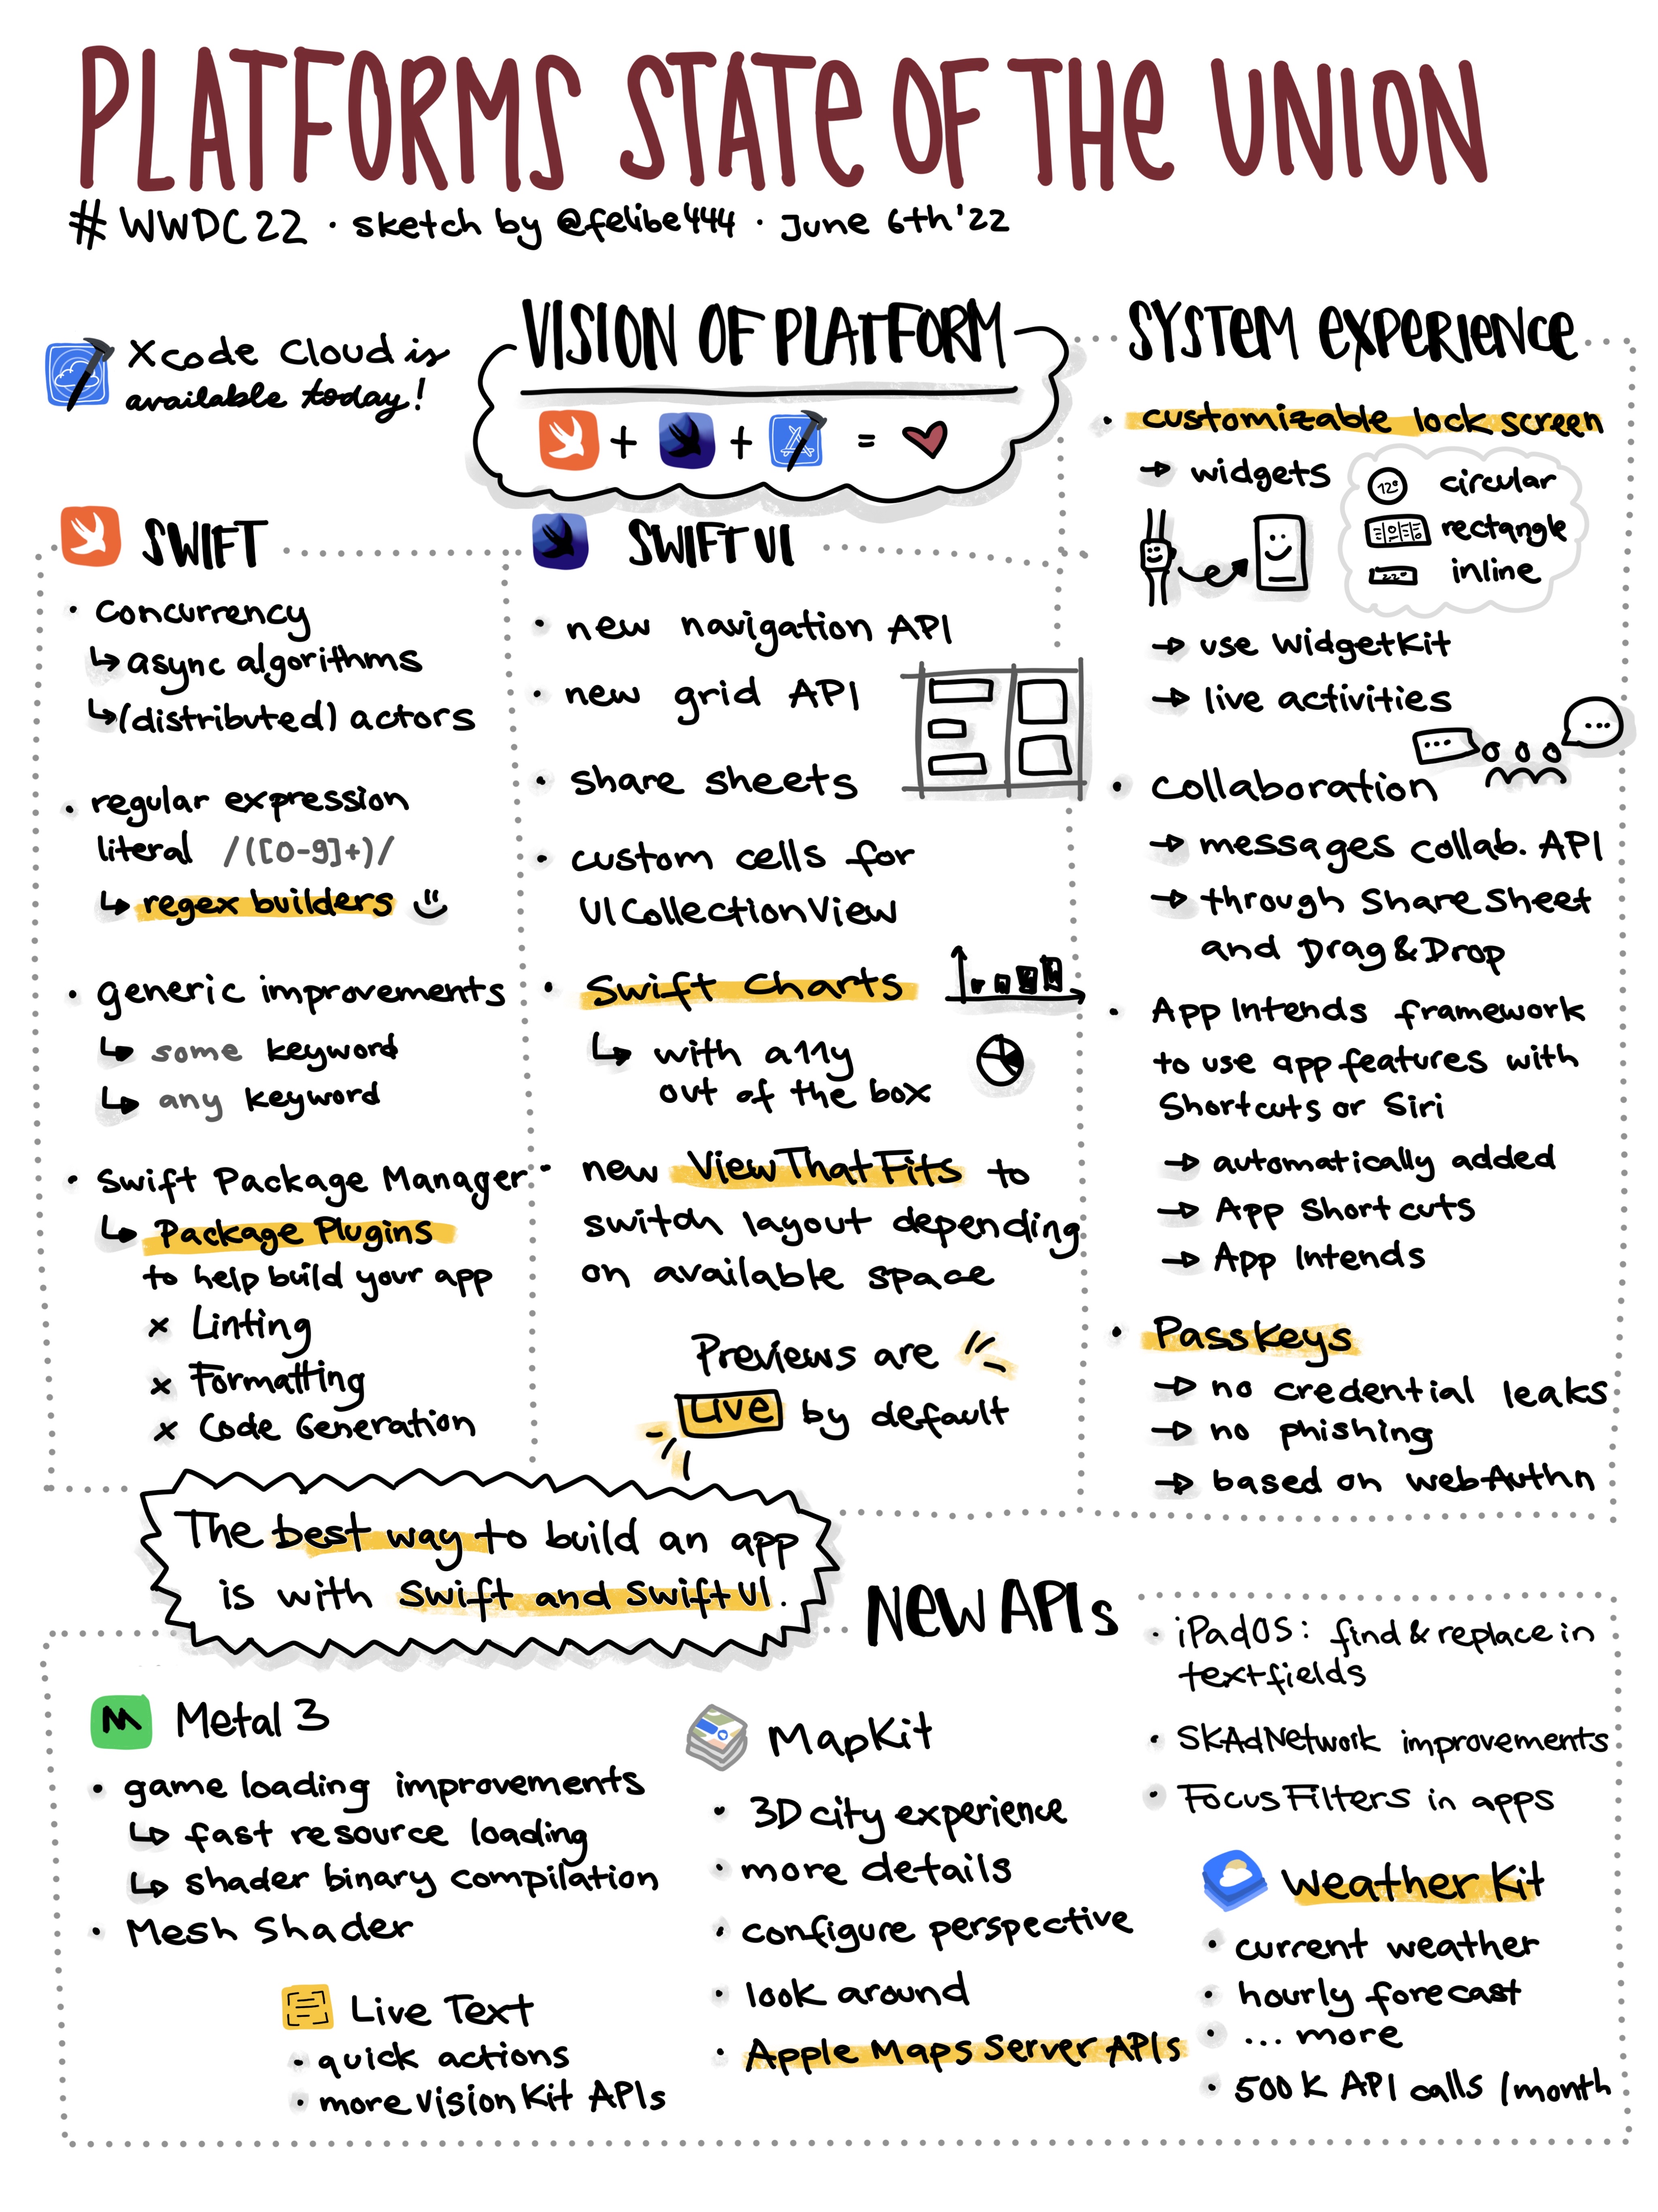 PLATFORMS STATE OF THE UNION
# WWDC22 · sketch by @felibe444 · June 6th '22
Xcode Cloud is
available today!
VISION OF PLATFORM
+ + = 
SWIFT
· Concurrency
↳ async algorithms
↳ (distributed) actors
· regular expression
literal /([0-9]+)/
↳ regex builders
· generic improvements
↳ some keyword
↳ any keyword
· Swift Package Manager
↳ Package Plugins
to help build your app
x Linting
x Formatting
x Code Generation
SWIFT UI
· new navigation API
· new grid API
· share sheets
· custom cells for
UICollectionView
· Swift Charts
↳ with a11y
out of the box
· new ViewThatFits to
switch layout depending
on available space
Previews are
LIVE by default
SYSTEM EXPERIENCE
· customizable lock screen
→ widgets
12°
circular
rectangle
inline
→ use WidgetKit
→ live activities
...
...
· Collaboration
→ messages collab. API
→ through Share Sheet
and Drag & Drop
· App Intends framework
to use app features with
Shortcuts or Siri
→ automatically added
→ App Shortcuts
→ App Intends
· PassKeys
→ no credential leaks
→ no phishing
→ based on webAuthn
The best way to build an app
is with Swift and SwiftUI.
NEW APIs
Metal 3
· game loading improvements
↳ fast resource loading
↳ shader binary compilation
· Mesh Shader
Live Text
· quick actions
· more vision Kit APIs
MapKit
· 3D city experience
· more details
· configure perspective
· look around
· Apple Maps Server APIs
· iPadOS: find & replace in
textfields
· SKAdNetwork improvements
· Focus Filters in apps
Weather Kit
· current weather
· hourly forecast
· ... more
· 500K API calls / month